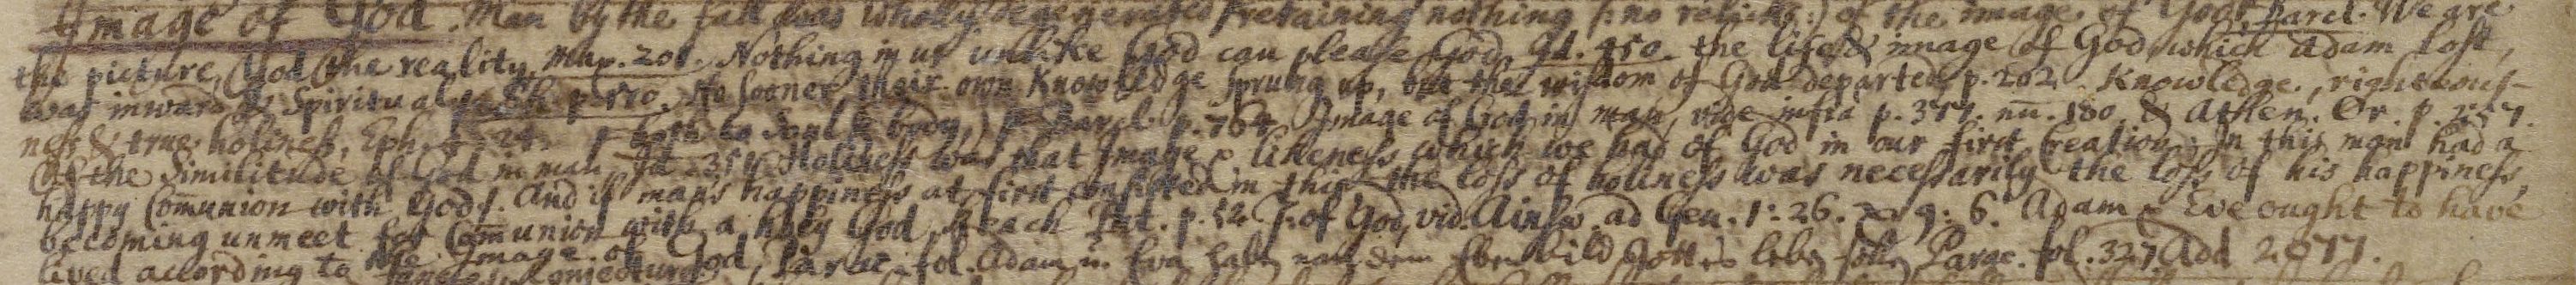 Image of God. Man by the fall was wholly degenerated (retaining nothing /: no relicks :/ of the image of God), Barcl. We are
the picture, God the reality, Map. 201. Nothing in us unlike God can please God, Id. 450. the life & image of God, which Adam lost,
was inward & Spiritual, p. 510. No sooner their own Knowledge sprung up, but the wisdom of God departed, p. 202. Knowledge, righteous-
ness & true holiness, Eph. 4: 24. both to Soul & body, p. Barcl. p. 764. Image of God in man, vide infra p. 377. nū. 180. & Athen. Or. p. 257.
Of the Similitude of God in man, Id. 254. Holiness was that Image & likeness which we had of God in our first Creation; In this man had a
happy Comunion with God. And if man's happiness at first consisted in this, the loss of holiness was necessarily the loss of his happiness,
becoming unmeet for Comunion with a holy God, p. 52. of God, vid. Ainsw. ad Gen. 1: 26. & 9: 6. Adam & Eve ought to have
lived according to the Image of God, Parac. fol. Adam u. Eva haben nach dem Ebenbild Gottes leben sollen, Parac. fol. 327 Add 2077.